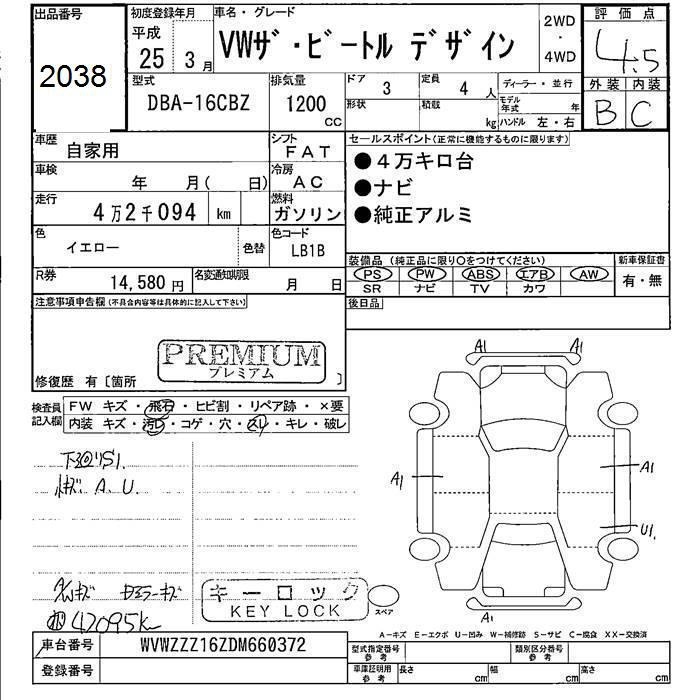 出品番号
2038
初度登録年月
平成
25年3月
車名・グレード
VWザ・ビートル デザイン
2WD
・
4WD
評価点
4.5
外装 内装
B C
型式
DBA-16CBZ
排気量
1200
CC
ドア
3
定員
4人
形状
積載
kg
ディーラー・並行
モデル年式 年
ハンドル 左・右
車歴
自家用
シフト
FAT
車検
年 月( 日)
冷房
AC
走行
4万2千094 km
燃料
ガソリン
色
イエロー
色替
色コード
LB1B
R券
14,580円
名変通知期限
月 日
セールスポイント(正常に機能するものに限ります)
●4万キロ台
●ナビ
●純正アルミ
装備品(純正品に限り○をつけてください)
PS PW ABS エアB AW
SR ナビ TV カワ
新車保証書
有・無
後日品
注意事項申告欄(不具合内容等は具体的に記入して下さい)
PREMIUM
プレミアム
修復歴 有〔箇所 〕
検査員記入欄
FW キズ・飛石・ヒビ割・リペア跡・×要
内装 キズ・汚れ・コゲ・穴・スレ・キレ・破レ
A.U.
42095k
キーロック
KEY LOCK
スペア
A1
A1
A1
A1
U1.
A1
A-キズ E-エクボ U-凹み W-補修跡 S-サビ C-腐食 XX-交換済
車台番号
WVWZZZ16ZDM660372
登録番号
型式指定番号
参考
類別区分番号
参考
車庫証明用
参考
長さ cm
幅 cm
高さ cm